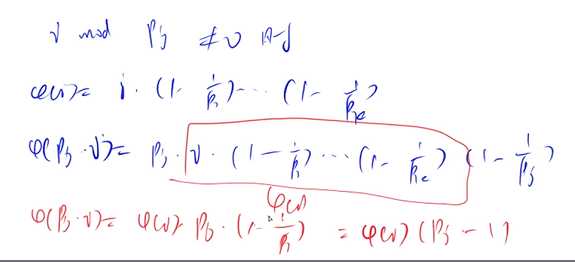 i mod Pj ≠ 0 时
φ(i) = i · (1 - 1/P1) ⋯ (1 - 1/Pk)
φ(Pj · i) = Pj · i · (1 - 1/P1) ⋯ (1 - 1/Pk) (1 - 1/Pj)
φ(i)
φ(Pj · i) = φ(i) · Pj · (1 - 1/Pj) = φ(i) (Pj - 1)